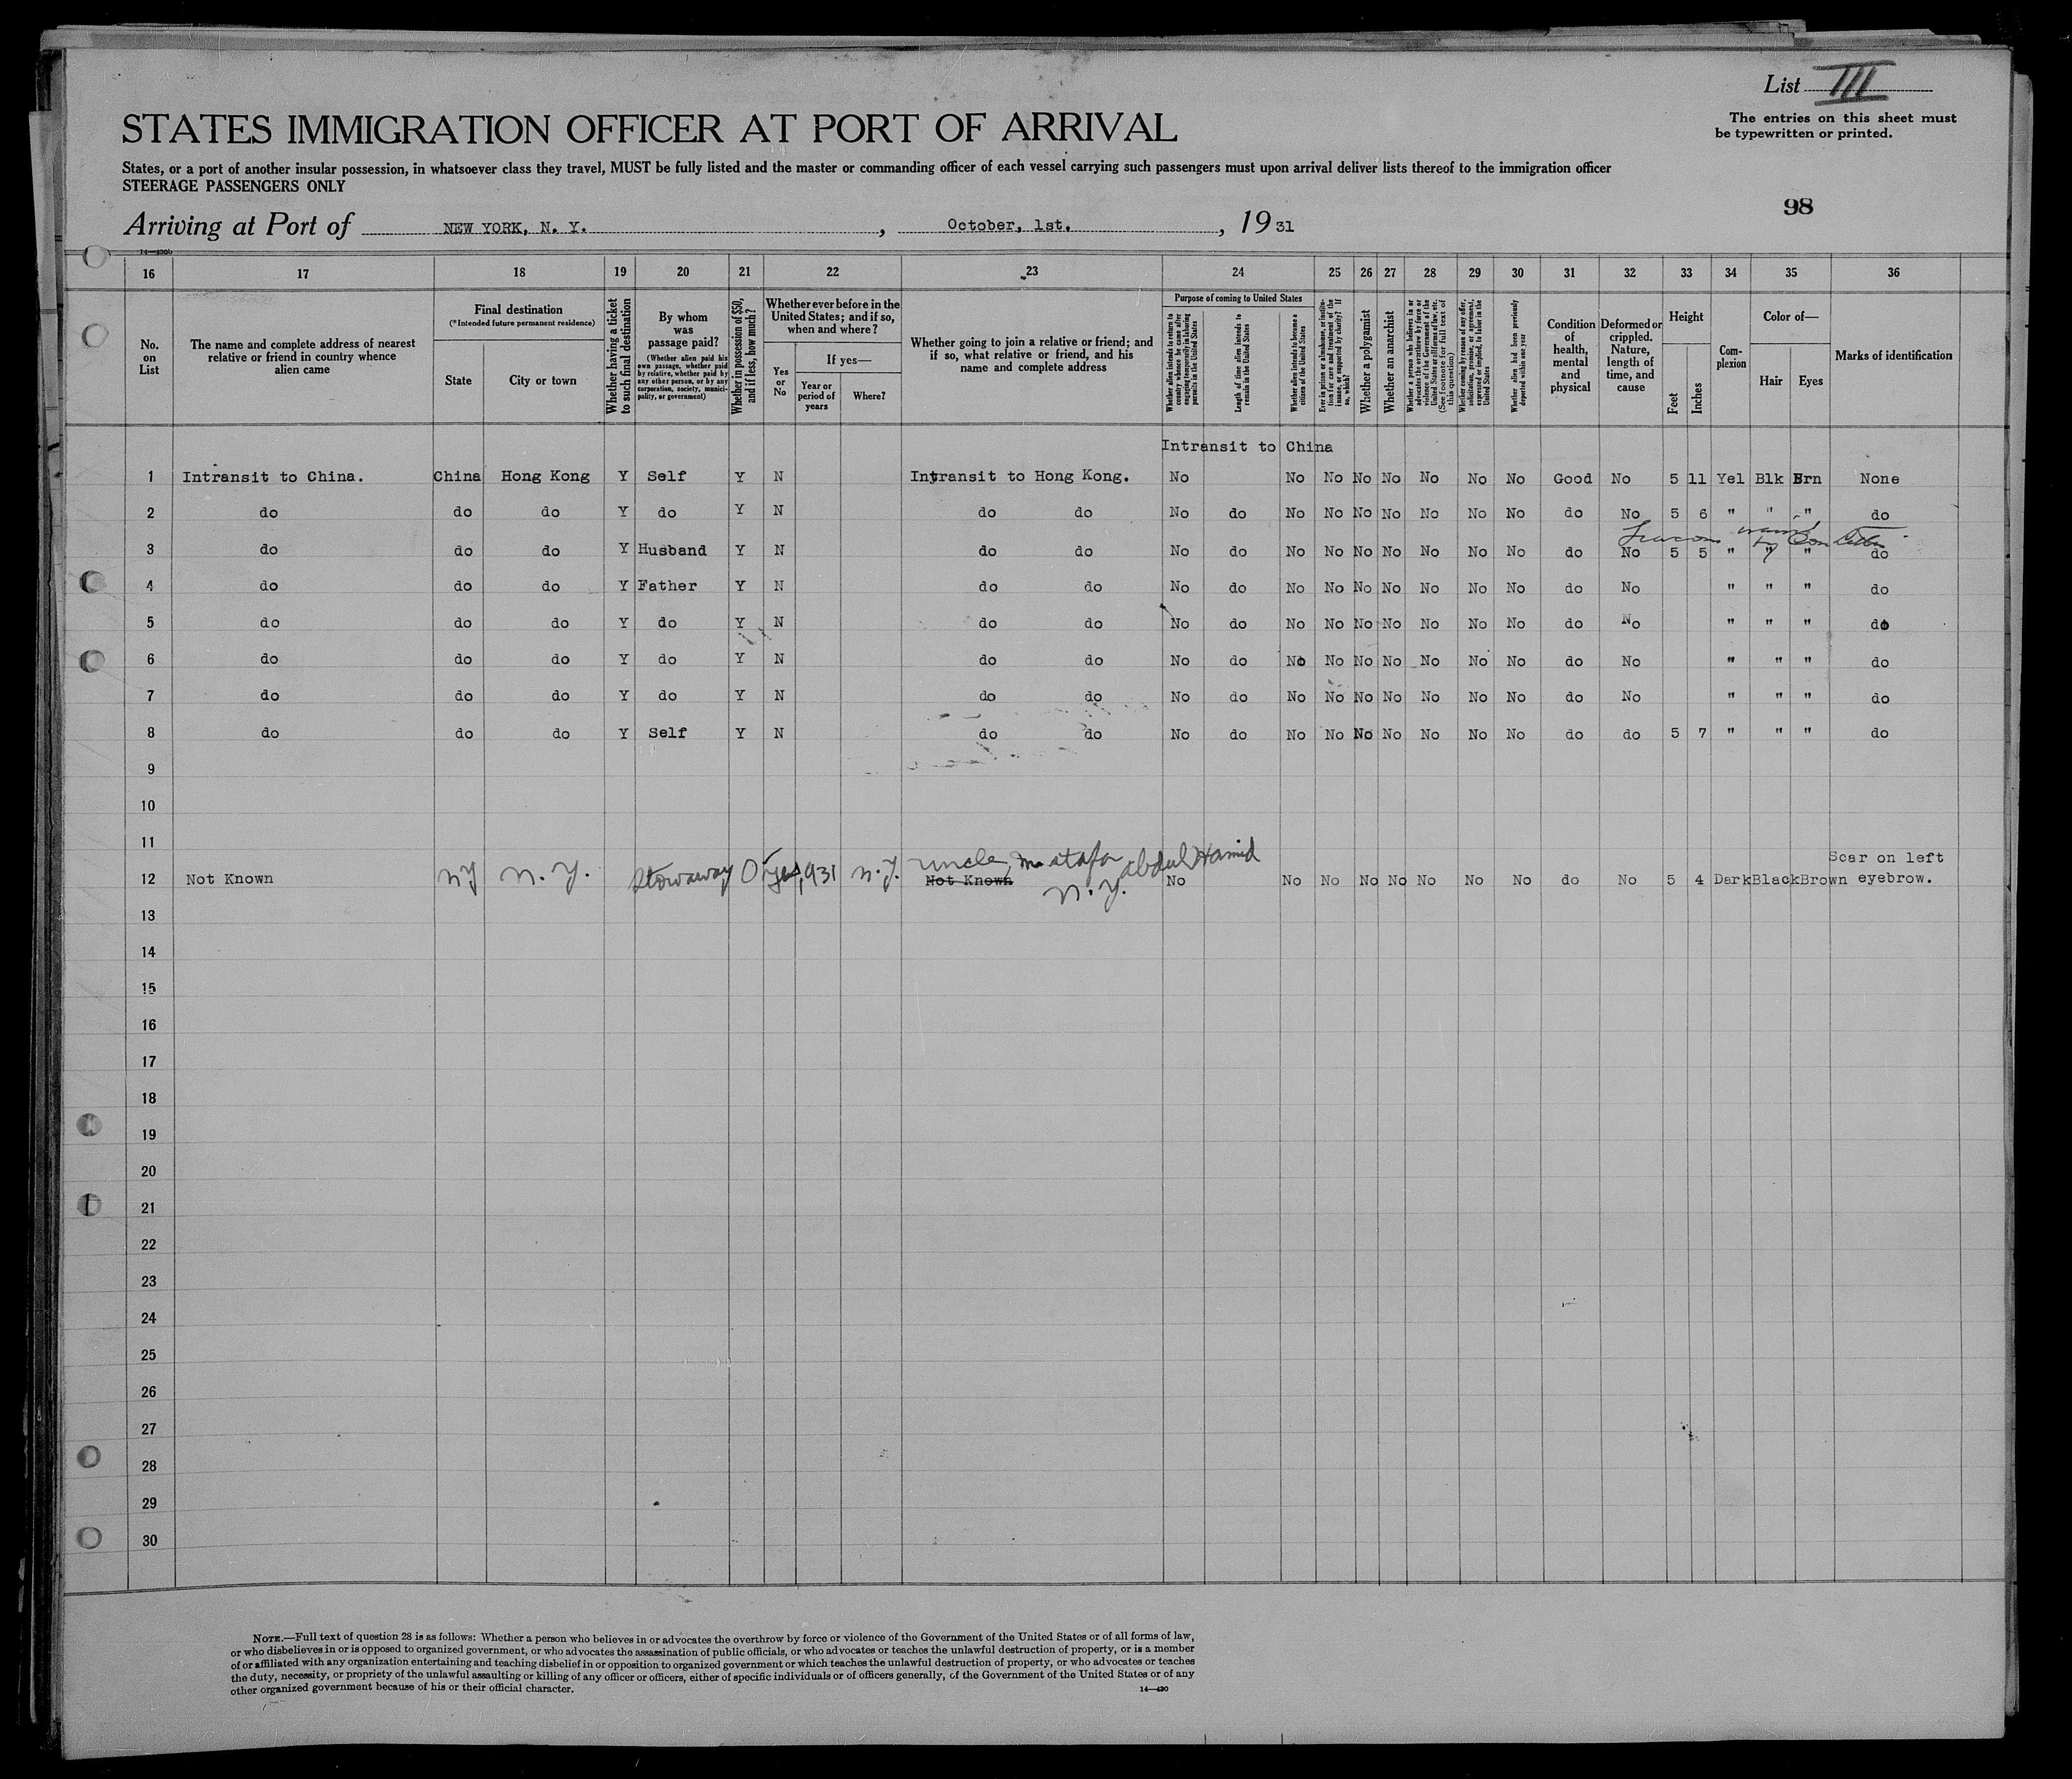 List III
The entries on this sheet must
be typewritten or printed.
STATES IMMIGRATION OFFICER AT PORT OF ARRIVAL
States, or a port of another insular possession, in whatsoever class they travel, MUST be fully listed and the master or commanding officer of each vessel carrying such passengers must upon arrival deliver lists thereof to the immigration officer
STEERAGE PASSENGERS ONLY
98
Arriving at Port of NEW YORK, N. Y. , October, 1st. , 1931
14—430b
16 17 18 19 20 21 22 23 24 25 26 27 28 29 30 31 32 33 34 35 36
No. on List
The name and complete address of nearest relative or friend in country whence alien came
Final destination (*Intended future permanent residence)
State
City or town
Whether having a ticket to such final destination
By whom was passage paid? (Whether alien paid his own passage, whether paid by relative, whether paid by any other person, or by any corporation, society, municipality, or government)
Whether in possession of $50, and if less, how much?
Whether ever before in the United States; and if so, when and where?
Yes or No
If yes—
Year or period of years
Where?
Whether going to join a relative or friend; and if so, what relative or friend, and his name and complete address
Purpose of coming to United States
Whether alien intends to return to country whence he came after engaging temporarily in laboring pursuits in the United States
Length of time alien intends to remain in the United States
Whether alien intends to become a citizen of the United States
Ever in prison or almshouse, or institution for care and treatment of the insane, or supported by charity? If so, which?
Whether a polygamist
Whether an anarchist
Whether a person who believes in or advocates the overthrow by force or violence of the Government of the United States or all forms of law, etc. (See footnote for full text of this question)
Whether coming by reason of any offer, solicitation, promise, or agreement, expressed or implied, to labor in the United States
Whether alien had been previously deported within one year
Condition of health, mental and physical
Deformed or crippled. Nature, length of time, and cause
Height
Feet
Inches
Complexion
Color of—
Hair
Eyes
Marks of identification
Intransit to China
1 Intransit to China. China Hong Kong Y Self Y N Intransit to Hong Kong. No No No No No No No No Good No 5 11 Yel Blk Brn None
2 do do do Y do Y N do do No do No No No No No No No do No 5 6 " " " do
3 do do do Y Husband Y N do do No do No No No No No No No do No 5 5 " " " do
4 do do do Y Father Y N do do No do No No No No No No No do No " " " do
5 do do do Y do Y N do do No do No No No No No No No do No " " " do
6 do do do Y do Y N do do No do No No No No No No No do No " " " do
7 do do do Y do Y N do do No do No No No No No No No do No " " " do
8 do do do Y Self Y N do do No do No No No No No No No do do 5 7 " " " do
9
10
11
uncle, Mustafa abdul Hamid
Scar on left
12 Not Known NY N. Y. Stowaway 0 yes 1931 N.Y. Not Known N. Y. No No No No No No No No do No 5 4 Dark Black Brown eyebrow.
13
14
15
16
17
18
19
20
21
22
23
24
25
26
27
28
29
30
NOTE.—Full text of question 28 is as follows: Whether a person who believes in or advocates the overthrow by force or violence of the Government of the United States or of all forms of law,
or who disbelieves in or is opposed to organized government, or who advocates the assassination of public officials, or who advocates or teaches the unlawful destruction of property, or is a member
of or affiliated with any organization entertaining and teaching disbelief in or opposition to organized government or which teaches the unlawful destruction of property, or who advocates or teaches
the duty, necessity, or propriety of the unlawful assaulting or killing of any officer or officers, either of specific individuals or of officers generally, of the Government of the United States or of any
other organized government because of his or their official character.
14—430